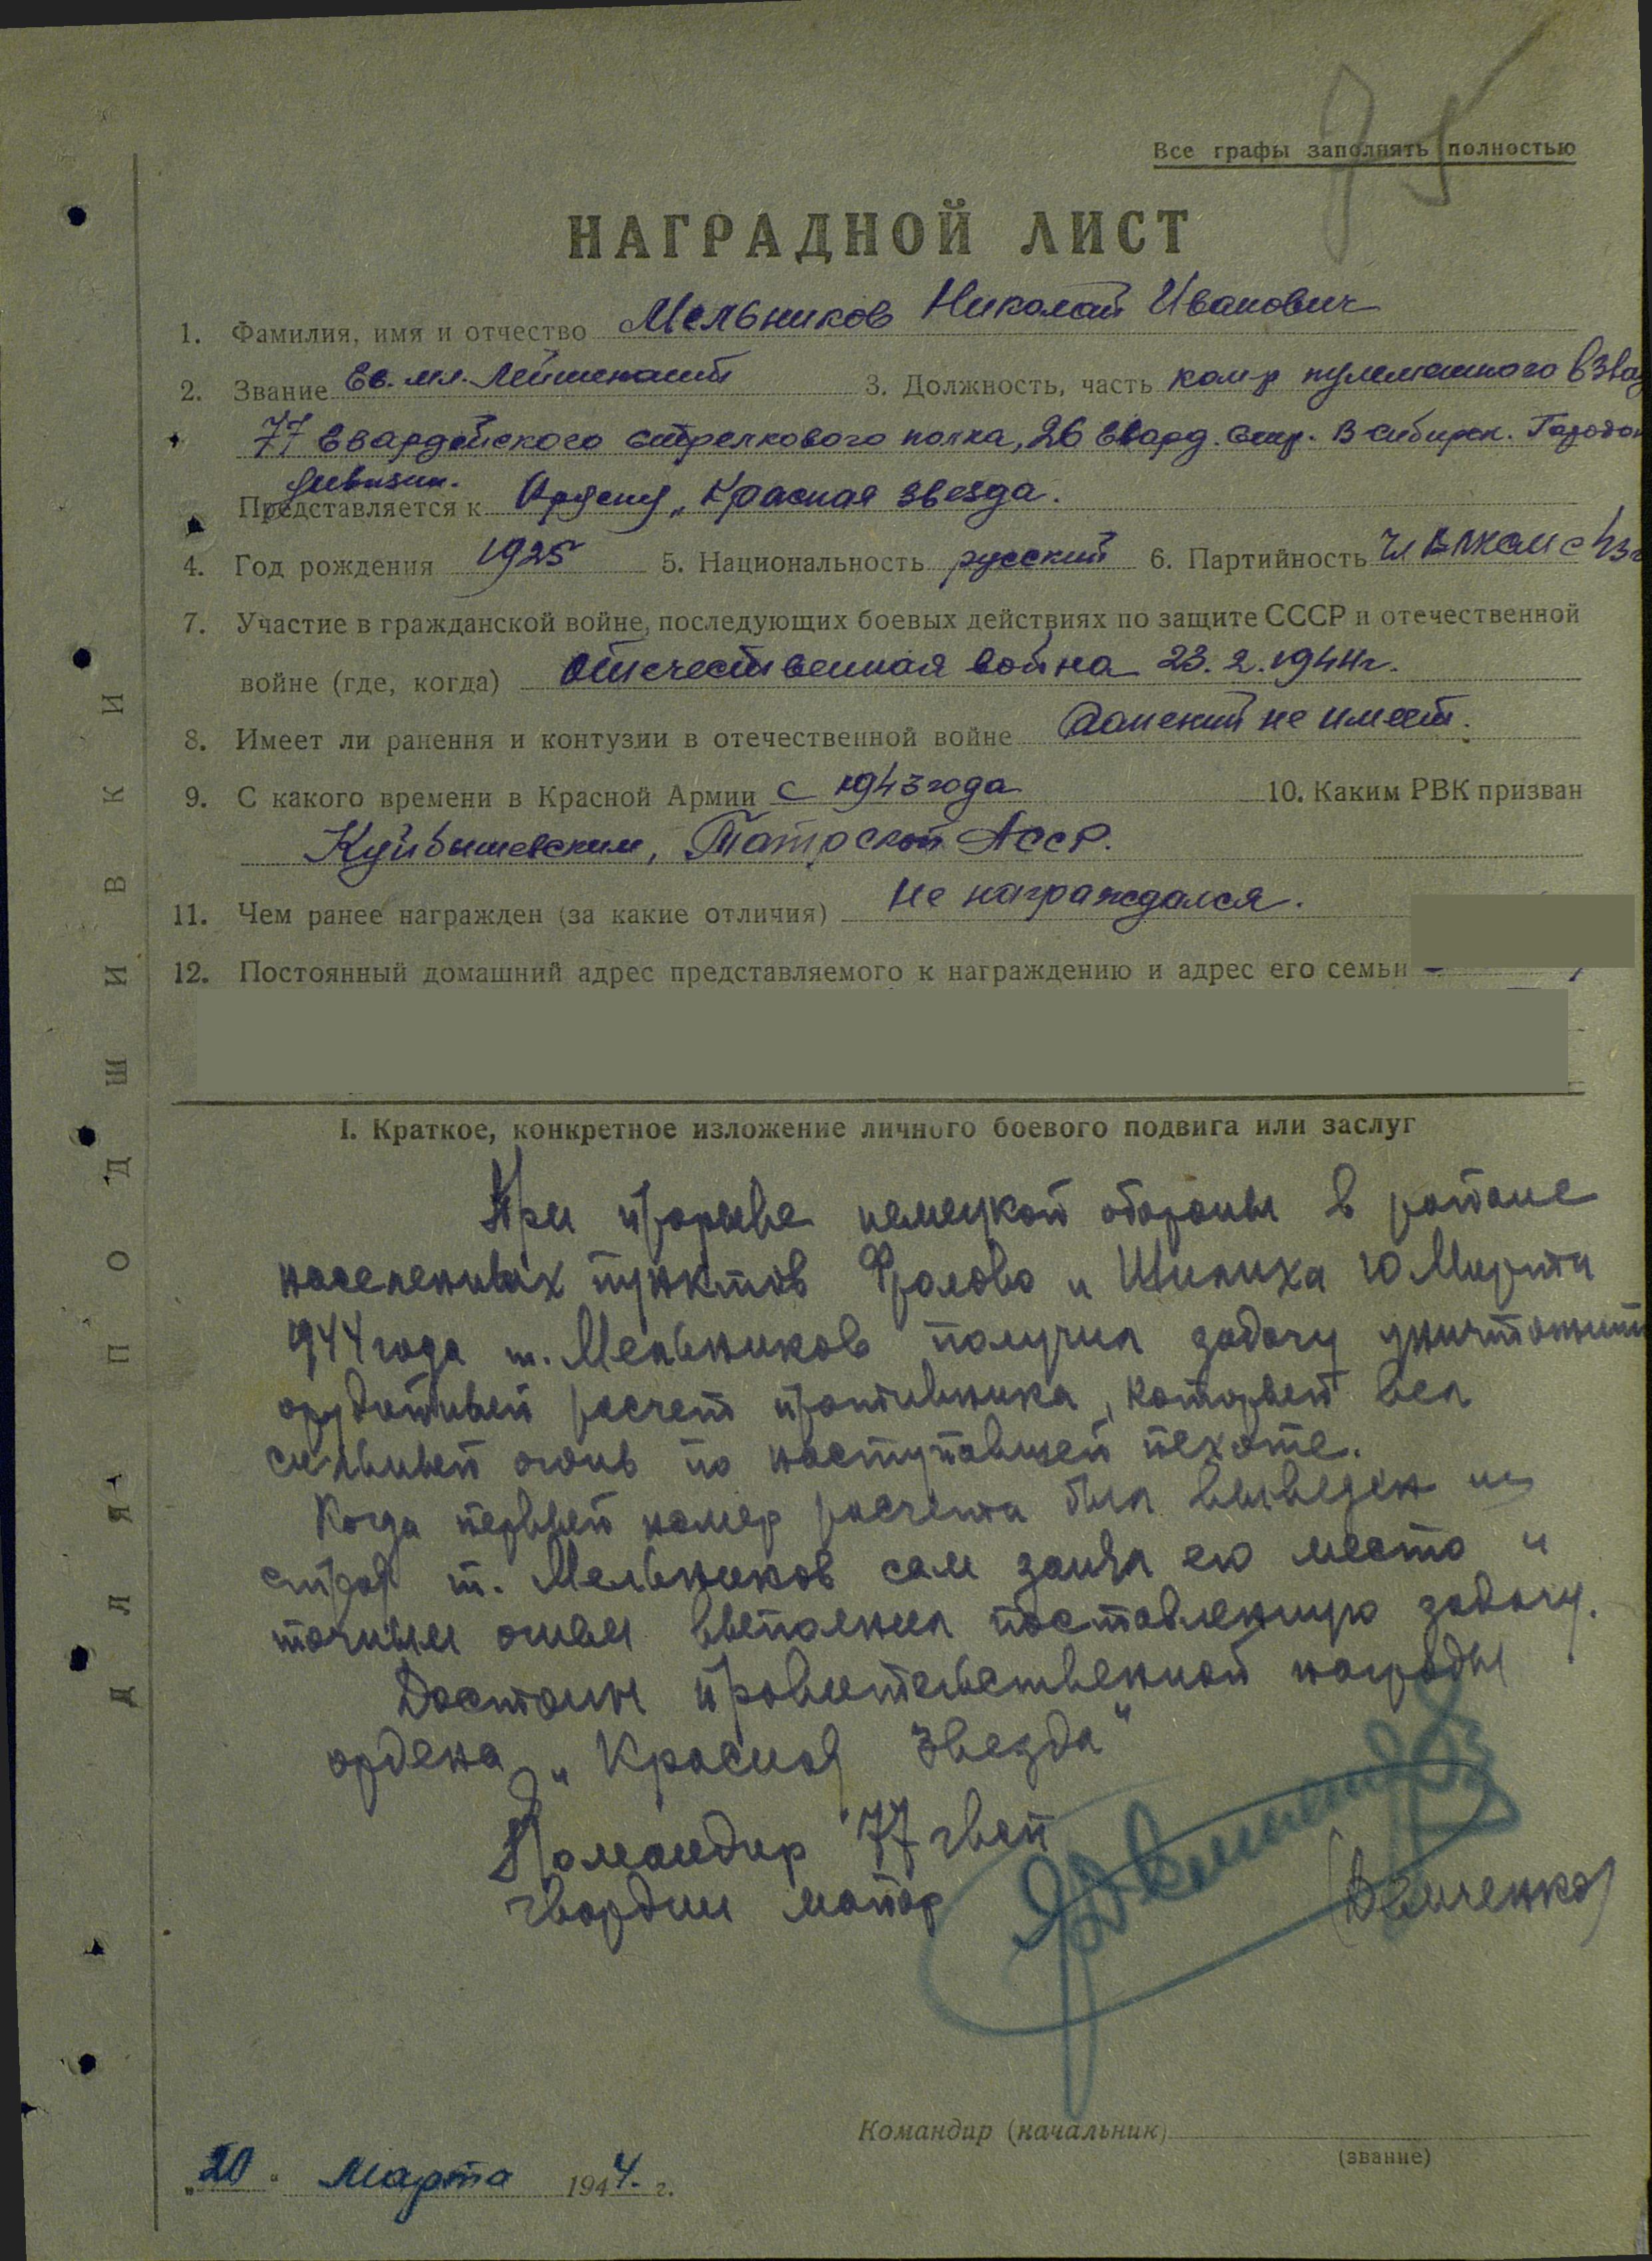 Все графы заполнять полностью
НАГРАДНОЙ ЛИСТ
1. Фамилия, имя и отчество Мельников Николай Иванович
2. Звание Гв. мл. Лейтенант 3. Должность, часть ком-р пулеметного взвода
77 Гвардейского стрелкового полка, 26 Гвард. Стр. В-Сибирск. Городок
дивизии.
Представляется к Ордену „Красная звезда.
4. Год рождения 1925 5. Национальность русский 6. Партийность Чл ВЛКСМ с 43 г
7. Участие в гражданской войне, последующих боевых действиях по защите СССР и отечественной
войне (где, когда) Отечественная война 23.2.1944г.
8. Имеет ли ранения и контузии в отечественной войне ранений не имеет.
9. С какого времени в Красной Армии с 1943 года 10. Каким РВК призван
Куйбышевским, Татрской АССР.
11. Чем ранее награжден (за какие отличия) не награждался.
12. Постоянный домашний адрес представляемого к награждению и адрес его семьи
I. Краткое, конкретное изложение личного боевого подвига или заслуг
При прорыве немецкой обороны в районе
населенных пунктов Фролово и Шилиха 10 Марта
1944 года т. Мельников получил задачу уничтожить
орудийный расчет противника, который вел
сильный огонь по наступавшей пехоте.
Когда первый номер расчета был выведен из
строя т. Мельников сам занял его место и
точным огнем выполнил поставленную задачу.
Достоин правительственной награды
ордена „Красная Звезда"
Командир 77 гвсп
гвардии майор (Демченко)
Командир (начальник)
(звание)
„20" Марта 1944. г.
ДЛЯ ПОДШИВКИ